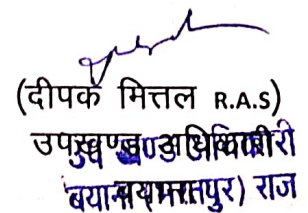 (दीपक मित्तल R.A.S)
उपखण्ड अधिकारी
बयाना (भरतपुर) राज